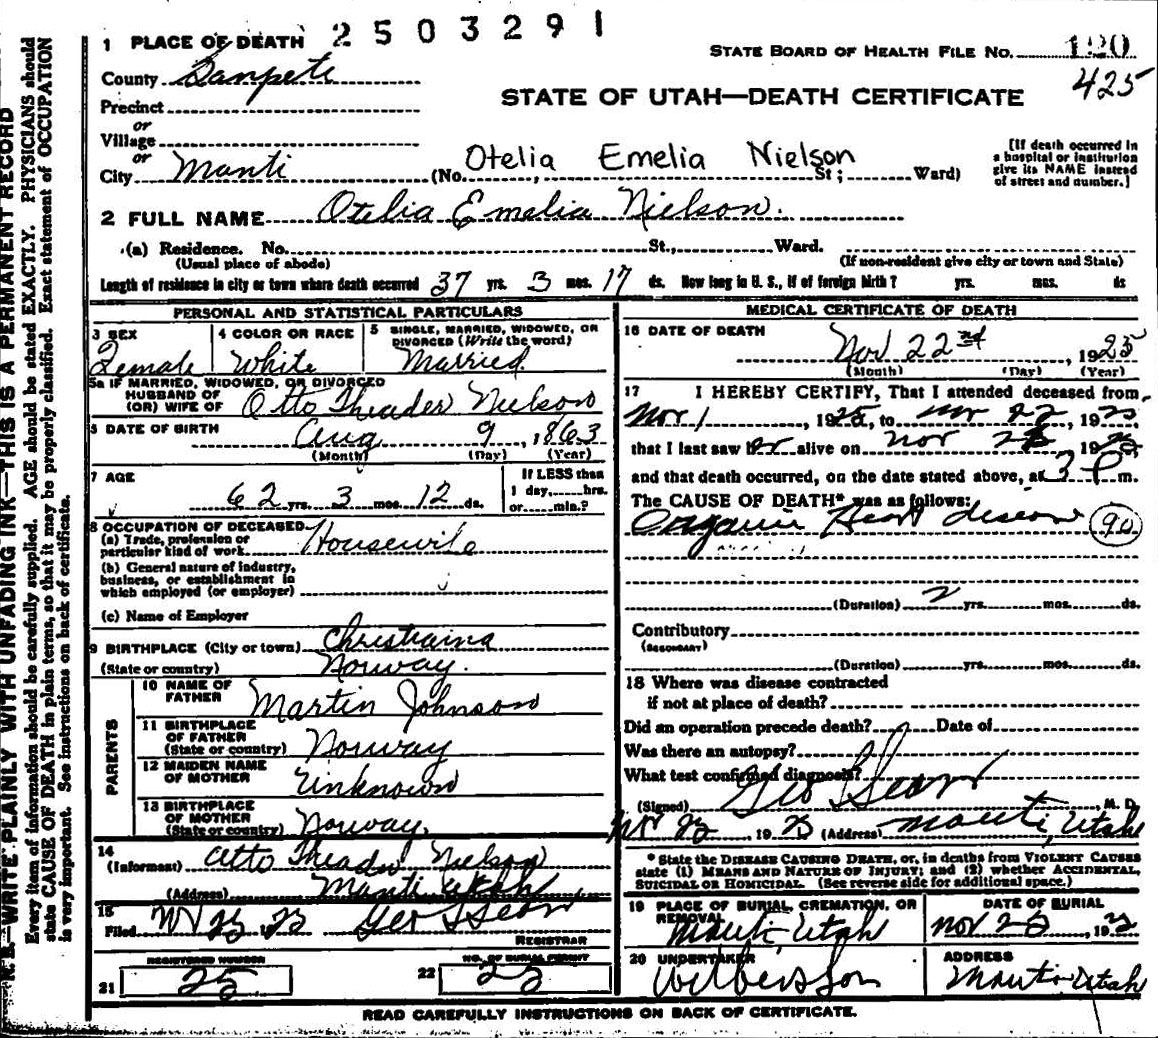 2503291
1 PLACE OF DEATH
STATE BOARD OF HEALTH FILE NO. 120
425
County Sanpete
STATE OF UTAH—DEATH CERTIFICATE
Precinct
or
Village
or
City Manti (No. Otelia Emelia Nielson St; Ward)
[If death occurred in a hospital or institution give its NAME instead of street and number.]
2 FULL NAME Otelia Emelia Nielson.
(a) Residence. No. St., Ward.
(Usual place of abode) (If non-resident give city or town and State)
Length of residence in city or town where death occurred 37 yrs. 3 mos. 17 ds. How long in U. S., if of foreign birth? yrs. mos. ds
PERSONAL AND STATISTICAL PARTICULARS
3 SEX Female
4 COLOR OR RACE White
5 SINGLE, MARRIED, WIDOWED, OR DIVORCED (Write the word) Married
5a IF MARRIED, WIDOWED, OR DIVORCED
HUSBAND OF
(OR) WIFE OF Otto Theader Nielson
DATE OF BIRTH Aug 9, 1863
(Month) (Day) (Year)
7 AGE
62 yrs. 3 mos. 12 ds.
If LESS than
1 day, hrs.
or min.?
8 OCCUPATION OF DECEASED
(a) Trade, profession or
particular kind of work Housewife
(b) General nature of industry,
business, or establishment in
which employed (or employer)
(c) Name of Employer
9 BIRTHPLACE (City or town) Christiaina
(State or country) Norway.
PARENTS
10 NAME OF FATHER Martin Johnson
11 BIRTHPLACE OF FATHER
(State or country) Norway
12 MAIDEN NAME OF MOTHER Unknown
13 BIRTHPLACE OF MOTHER
(State or country) Norway.
14
(Informant) Otto Theader Nielson
(Address) Manti Utah
15
Filed Nov 19
REGISTRAR
REGISTERED NUMBER
21 25
NO. OF BURIAL PERMIT
22
MEDICAL CERTIFICATE OF DEATH
16 DATE OF DEATH
Nov 22nd, 1925
(Month) (Day) (Year)
17 I HEREBY CERTIFY, That I attended deceased from
Nov 1, 1925, to Nov 22, 1925
that I last saw her alive on Nov 1925
and that death occurred, on the date stated above, at 3 P m.
The CAUSE OF DEATH* was as follows:
Organic Heart disease 90
(Duration) 2 yrs. mos. ds.
Contributory
(SECONDARY)
(Duration) yrs. mos. ds.
18 Where was disease contracted
if not at place of death?
Did an operation precede death? Date of
Was there an autopsy?
What test confirmed diagnosis?
(Signed) Geo, M. D.
Nov 23, 1925 (Address) Manti, Utah
* State the DISEASE CAUSING DEATH, or, in deaths from VIOLENT CAUSES
state (1) MEANS AND NATURE OF INJURY; and (2) whether ACCIDENTAL,
SUICIDAL OR HOMICIDAL. (See reverse side for additional space.)
19 PLACE OF BURIAL, CREMATION, OR REMOVAL
Manti, Utah
DATE OF BURIAL
Nov 25, 192
20 UNDERTAKER
ADDRESS
Manti Utah
READ CAREFULLY INSTRUCTIONS ON BACK OF CERTIFICATE.
N. B.—WRITE PLAINLY WITH UNFADING INK—THIS IS A PERMANENT RECORD
Every item of information should be carefully supplied. AGE should be stated EXACTLY. PHYSICIANS should
state CAUSE OF DEATH in plain terms, so that it may be properly classified. Exact statement of OCCUPATION
is very important. See instructions on back of certificate.